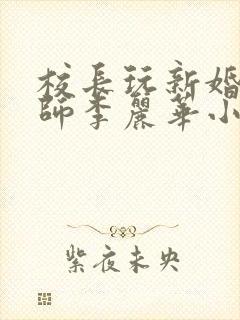 校長玩新婚
師李麗華小
紫夜未央